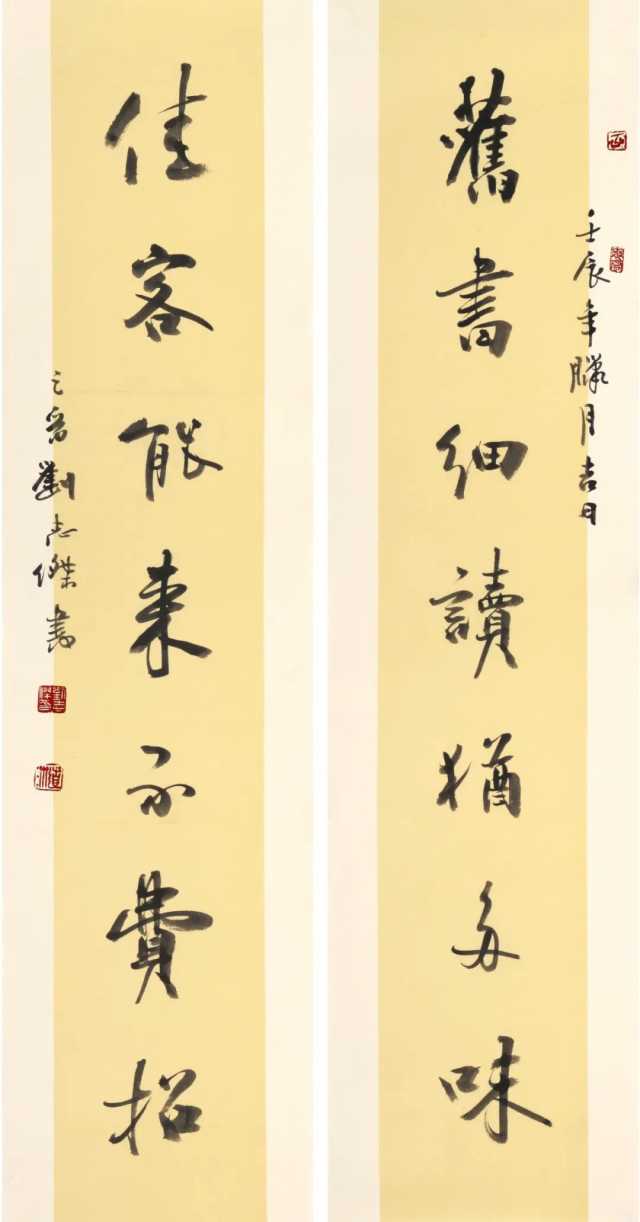 壬辰年臘月吉日
舊書細讀猶多味
佳客能來不費招
劉志傑書